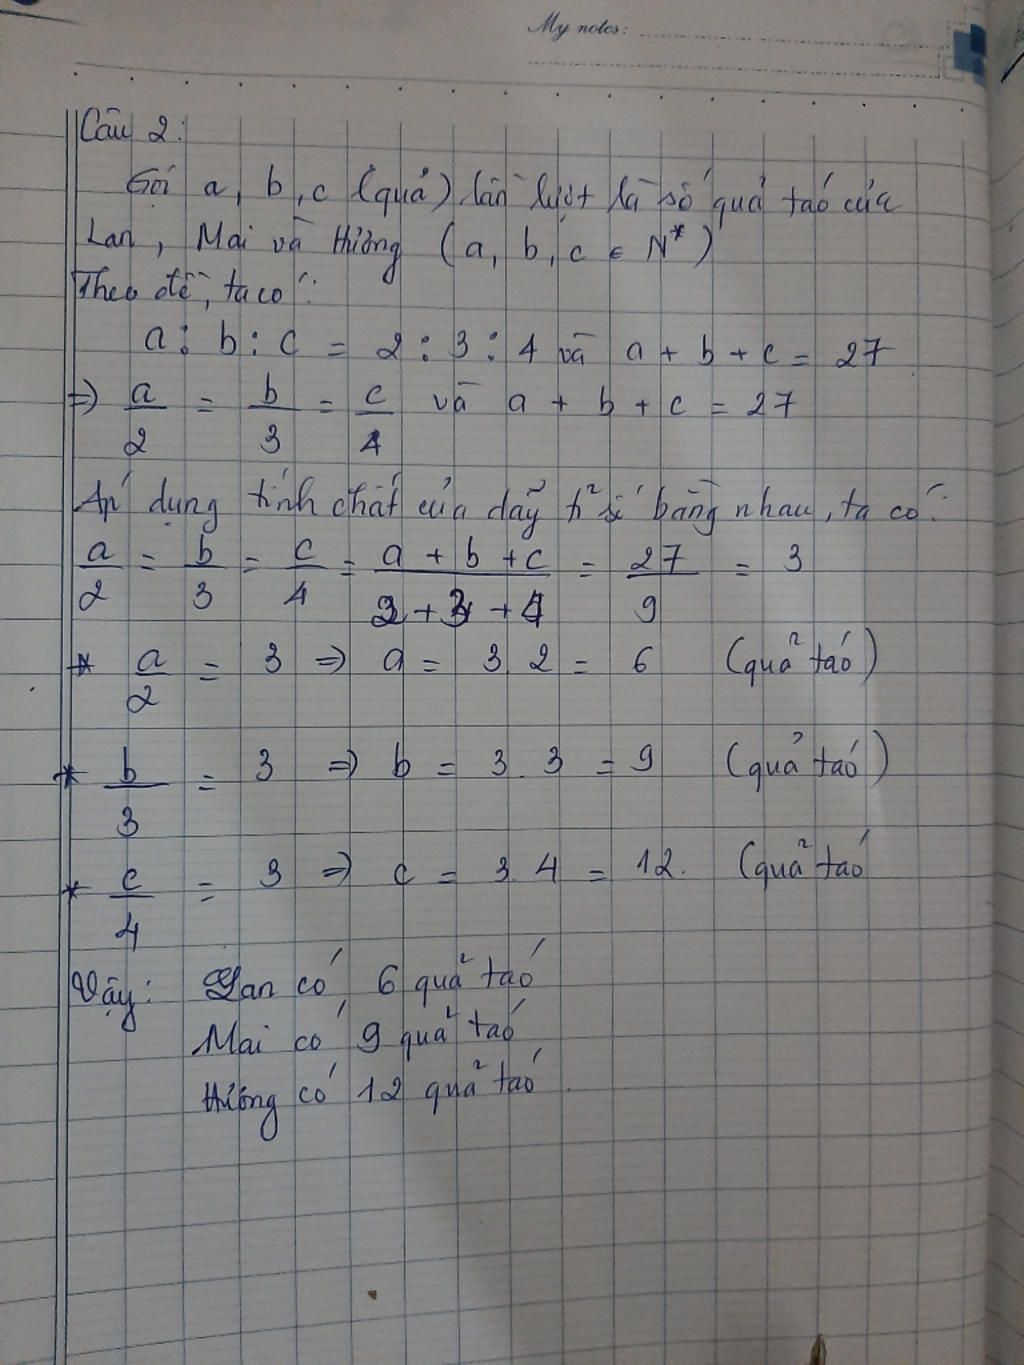 My notes:
Câu 2:
Gọi a, b, c (quả) lần lượt là số quả táo của
Lan, Mai và Hường (a, b, c ∈ N*)
Theo đề, ta có:
a : b : c = 2 : 3 : 4 và a + b + c = 27
=> a/2 = b/3 = c/4 và a + b + c = 27
Áp dụng tính chất của dãy tỉ số bằng nhau, ta có:
a/2 = b/3 = c/4 = (a + b + c)/(2 + 3 + 4) = 27/9 = 3
* a/2 = 3 => a = 3.2 = 6 (quả táo)
* b/3 = 3 => b = 3.3 = 9 (quả táo)
* c/4 = 3 => c = 3.4 = 12. (quả táo
Vậy: Lan có 6 quả táo
Mai có 9 quả táo
Hường có 12 quả táo.